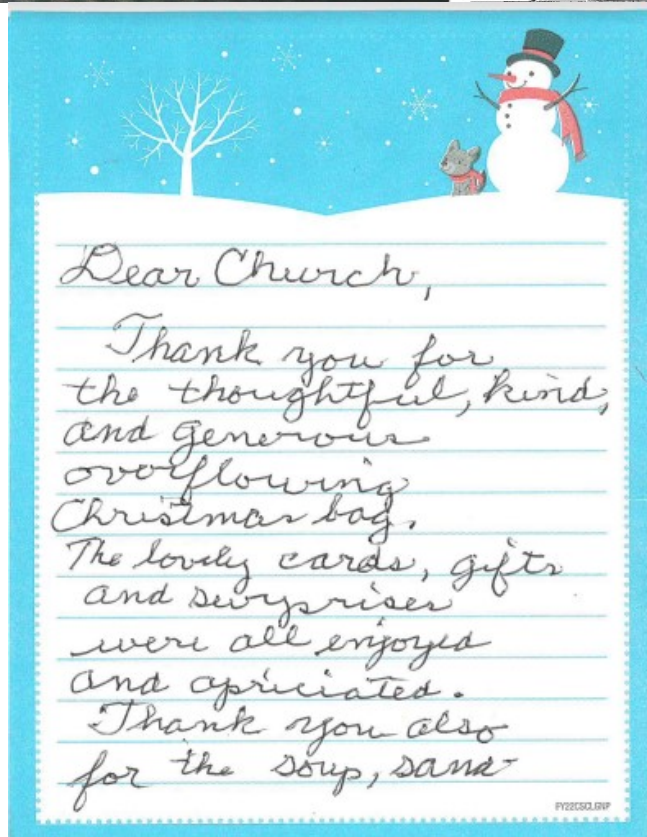 Dear Church,
Thank you for
the thoughtful, kind,
and generous
overflowing
Christmas bag.
The lovely cards, gifts
and surprises
were all enjoyed
and apriciated.
Thank you also
for the soup, sand-
FY22CSCLGNP